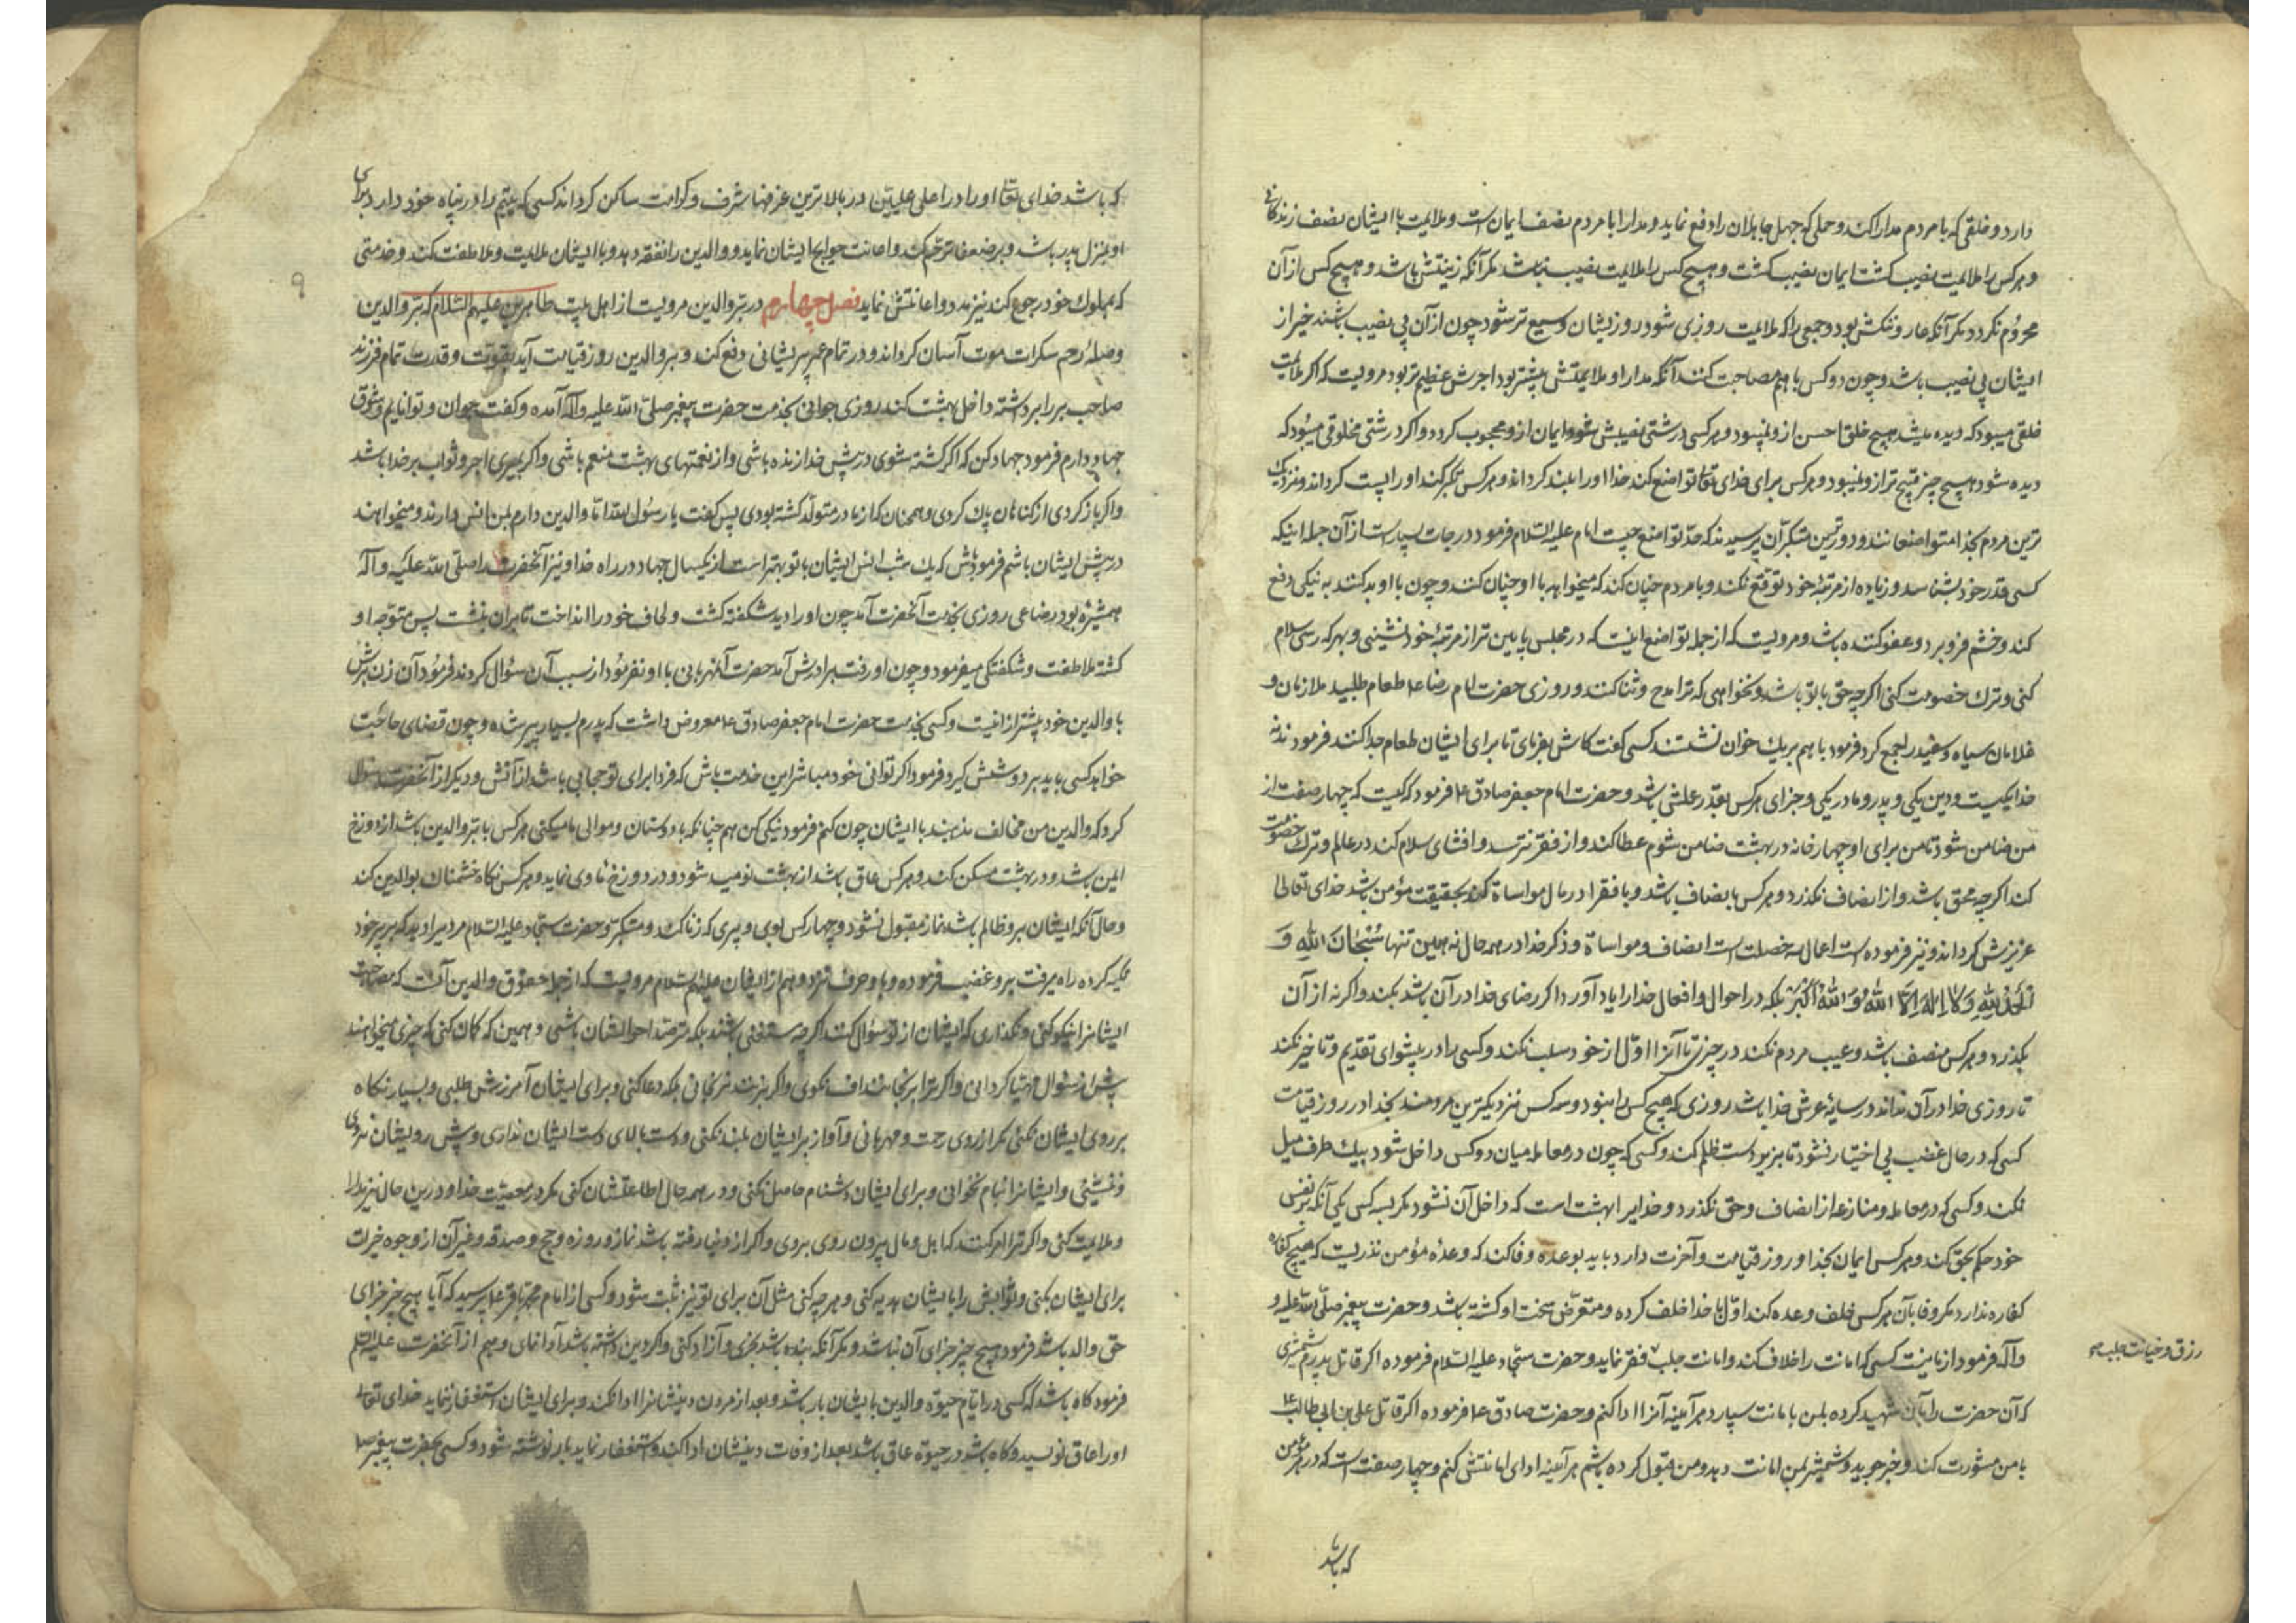 دارد و خلقی که با مردم مدارا کند و حلمی که جهل جاهلان را دفع نماید و مدارا با مردم نصف ایمان است و ملایمت با ایشان نصف زندکانی
و هر کس را ملایمت نصیب کشت ایمان نصیب کشت و هیچ کس را ملایمت نصیب نباشد مکر آنکه زینتش باشد و هیچ کس از آن
محروم نکردد مکر آنکه عار و ننکش بود و جمعی را که ملایمت روزی شود روزیشان وسیع تر شود چون از آن بی نصیب باشند خیر از
ایشان بی نصیب باشد و چون دو کس با هم مصاحبت کنند آنکه مدارا و ملایمتش بیشتر بود اجرش عظیم تر بود مرویست که اکر ملایمت
خلقی میبود که دیده میشد هیچ خلق احسن از و نمیبود و هر کس درشتی نصیبش شود ایمان از و محجوب کردد و اکر درشتی مخلوقی میبود که
دیده شود هیچ چیز قبیح تر از و نمیبود و هر کس برای خدای تعالی تواضع کند خدا او را بلند کرداند و هر کس تکبر کند او را پست کرداند و نزدیک
ترین مردم بخدا متواضعانند و دورترین متکبران پرسیدند که حد تواضع چیست امام علیه السلام فرمود درجات بسیارست از آن جمله اینکه
کسی قدر خود بشناسد و زیاده از مرتبه خود توقع نکند و با مردم چنان کند که میخواهد با او چنان کنند و چون با او بد کنند به نیکی دفع
کند و خشم فرو برد و عفو کننده باشد و مرویست که از جمله تواضع اینست که در مجلس پایین تر از مرتبه خود نشینی و بهر که رسی سلام
کنی و ترک خصومت کنی اکر چه حق با تو باشد و نخواهی که ترا مدح و ثنا کنند و روزی حضرت امام رضا ع طعام طلبید ملازمان و
غلامان سیاه و سفید را جمع کرد فرمود با هم بر یک خوان نشستند کسی کفت کاش بفرمای تا برای ایشان طعام جدا کنند فرمود نه
خدا یکیست و دین یکی و پدر و مادر یکی و جزای هر کس بقدر عملش باشد و حضرت امام جعفر صادق ع فرمود که کیست که چهار صفت از
من ضامن شود تا من برای او چهار خانه در بهشت ضامن شوم عطا کند و از فقر نترسد و افشای سلام کند در عالم و ترک خصومت
کند اکر چه محق باشد و از انصاف نکذرد و هر کس با نصاف باشد و با فقرا در مال مواساة کند بحقیقت مؤمن باشد خدای تعالی
عزیزش کرداند و نیز فرموده است اعمال سه خصلت است انصاف و مواساة و ذکر خدا در همه حال نه همین تنها سُبْحٰانَ اللّٰهِ وَ
اَلْحَمْدُ لِلّٰهِ وَ لا اِلٰهَ اِلَّا اللّٰهُ وَ اللّٰهُ اَكْبَرُ بلکه در احوال و افعال خدا را یاد آورد اکر رضای خدا در آن باشد بکند و اکر نه از آن
بکذرد و هر کس منصف باشد و عیب مردم نکند در چیزی تا آنرا اول از خود سلب نکند و کسی را در پیشوای تقدیم و تاخیر نکند
تا روزی خدا در آن نداند در سایه عرش خدا باشد روزی که هیچ کس را نبود و سه کس نزدیکترین مردمند بخدا در روز قیامت
کسی که در حال غضب بی اختیار نشود تا بزیر دست ظلم کند و کسی که چون در معامله میان دو کس داخل شود بیک طرف میل
نکند و کسی که در معامله و منازعه از انصاف و حق نکذرد و خدایرا بهشت است که داخل آن نشود مکر سه کس یکی آنکه بر نفس
خود حکم بحق کند و هر کس ایمان بخدا و روز قیامت و آخرت دارد باید بوعده وفا کند که وعده مؤمن نذریست که هیچ کفاره
کفاره ندارد مکر وفا بآن هر کس خلف وعده کند اول با خدا خلف کرده و متعرض سخت او کشته باشد و حضرت پیغمبر صلی الله علیه و
وآله فرمود از ما نیست کسی که امانت را خلاف کند و امانت جلب فقر نماید و حضرت سجاد علیه السلام فرموده اکر قاتل پدرم شمشیری
رزق و خیانت جلب
که آن حضرت را بآن شهید کرده بمن بامانت سپارد هر آینه آنرا ادا کنم و حضرت صادق ع فرموده اکر قاتل علی بن ابی طالب ع
با من مشورت کند و خیر جوید و شمشیر بمن امانت دهد و من قبول کرده باشم هر آینه ادای امانتش کنم و چهار صفت است که در هر مؤمن
که باشد
که باشد خدای تعالی او را در اعلی علیین در بالاترین غرفها شرف و کرامت ساکن کرداند کسی که یتیم را در پناه خود دارد و برای
او بمنزل پدر باشد و بر ضعفا ترحم کند و اعانت حوایج ایشان نماید و والدین را نفقه دهد و با ایشان ملایمت و ملاطفت کند و خدمتی
۹
که بمملوک خود رجوع کند نیز مدد و اعانتش نماید فصل چهارم در بر والدین مرویست از اهل بیت طاهرین علیهم السلام که بر والدین
وصله رحم سکرات موت آسان کرداند و در تمام عمر پریشانی دفع کند و بر والدین روز قیامت آید بقوت و قدرت تمام فرزند
صاحب بر را برداشته داخل بهشت کند روزی جوانی بخدمت حضرت پیغمبر صلی الله علیه وآله آمده و کفت جوان و توانایم و شوق
جهاد دارم فرمود جهاد کن که اکر کشته شوی در پیش خدا زنده باشی و از نعمتهای بهشت منعم باشی و اکر بمیری اجر و ثواب بر خدا باشد
و اکر باز کردی از کناهان پاک کردی و همچنان که از مادر متولد کشته بودی پس کفت یا رسول الله اما والدین دارم بمن انس دارند و میخواهند
در پیش ایشان باشم فرمود باش که یک شب انس ایشان با تو بهتر است از یکسال جهاد در راه خدا و نیز آنحضرت را صلی الله علیه و آله
همشیره بود رضاعی روزی بخدمت آنحضرت آمد چون او را دید شکفته کشت و لحاف خود را انداخت تا بر آن بنشست پس متوجه او
کشته ملاطفت و شکفتکی میفرمود و چون او رفت برادرش آمد حضرت آن مهربانی با او نفرمود از سبب آن سؤال کردند فرمود آن زن برش
با والدین خود بیشتر از اینست و کسی بخدمت حضرت امام جعفر صادق ع معروض داشت که پدرم بسیار پیر شده و چون قضای حاجت
خواهد کسی باید بر دوشش کیرد فرمود اکر توانی خود مباشر این خدمت باش که فردا برای تو حجابی باشد از آتش و دیکر از آنحضرت سؤال
کرد که والدین من مخالف مذهبند با ایشان چون کنم فرمود نیکی کن هم چنانکه با دوستان و موالی ما میکنی هر کس با بر والدین باشد از دوزخ
ایمن باشد و در بهشت مسکن کند و هر کس عاق باشد از بهشت نومید شود و در دوزخ ماوی نماید و هر کس نکاه خشمناک بوالدین کند
و حال آنکه ایشان بر و ظالم باشند نماز مقبول نشود و چهار کس بوی و پیری که زنا کند و متکبر و حضرت سجاد علیه السلام مردیرا دید که بر پسر خود
تکیه کرده راه میرفت بر و غضب فرموده و با و حرف نزد و هم از ایشان علیهم السلام مرویست که از جمله حقوق والدین آنست که مصاحبت
ایشانرا نیکو کنی و نکذاری که ایشان از تو سؤال کنند اکر چه مستغنی باشند بلکه مترصد احوالشان باشی و همین که کمان کنی که چیزی میخواهند
پیش از سؤال مهیا کردانی و اکر ترا برنجانند اف نکوی و اکر بزنند نرنجانی بلکه دعا کنی و برای ایشان آمرزش طلبی و بسیار نکاه
بر روی ایشان نکنی مکر از روی رحمت و مهربانی و آواز بر ایشان بلند نکنی و دست بالای دست ایشان نداری و پیش رویشان نروی
و ننشینی و ایشانرا بنام نخوانی و برای ایشان دشنام حاصل نکنی و در همه حال اطاعتشان کنی مکر در معصیت خدا و درین حال نیز مدارا
و ملایمت کنی و اکر ترا امر کنند که از اهل و مال بیرون روی بروی و اکر از دنیا رفته باشند نماز و روزه و حج و صدقه و غیر آن از وجوه خیرات
برای ایشان بکنی و ثوابش را بایشان هدیه کنی و هر چه کنی مثل آن برای تو نیز ثبت شود و کسی از امام محمد باقر ع پرسید که آیا هیچ چیز جزای
حق والد باشد فرمود هیچ چیز جزای آن نباشد مکر آنکه بنده باشد بخری و آزاد کنی و اکر دین داشته باشد ادا نمای و هم از آنحضرت علیه السلام
فرمود کاه باشد که کسی در ایام حیوة والدین بایشان بار باشد و بعد از مردن دینشانرا ادا نکند و برای ایشان استغفار ننماید خدای تعالی
او را عاق نویسد و کاه باشد در حیوة عاق باشد بعد از وفات دینشان ادا کند و استغفار نماید بار نوشته شود و کسی بحضرت پیغمبر ص